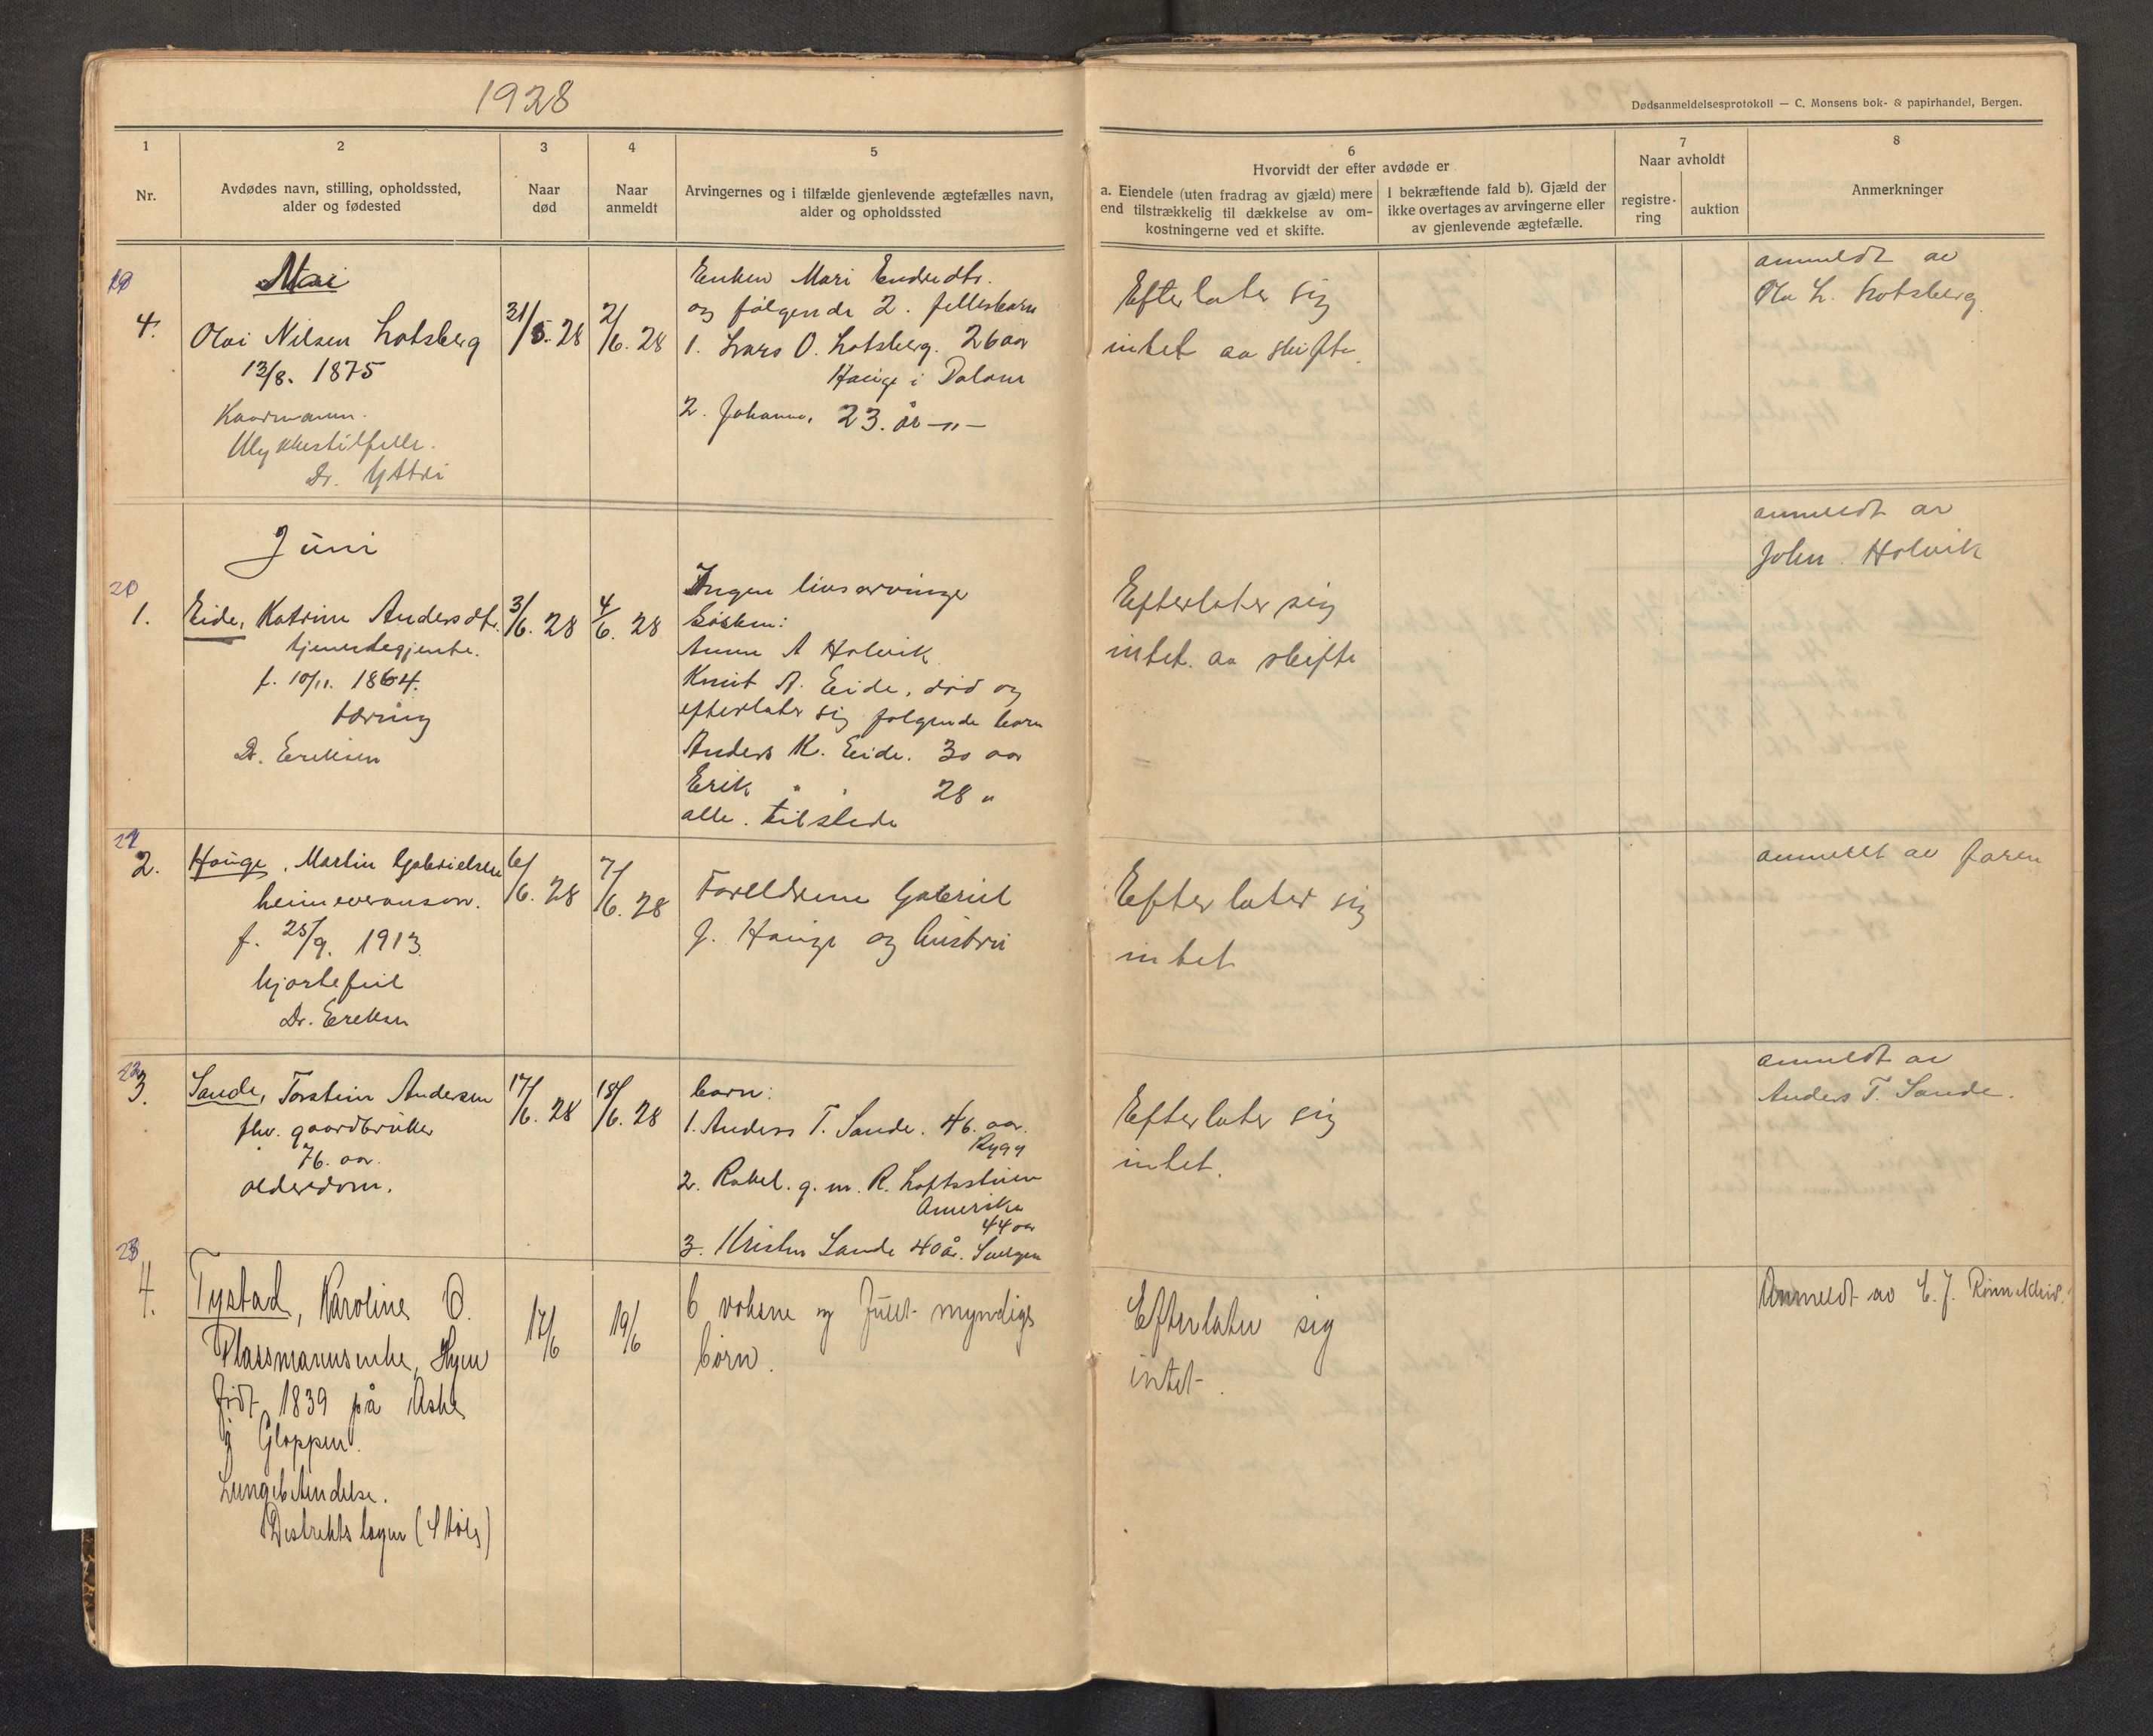 1928
Dødsanmeldelsesprotokoll — C. Monsens bok- & papirhandel, Bergen.
1
Nr.
2
Avdødes navn, stilling, opholdssted,
alder og fødested
3
Naar
død
4
Naar
anmeldt
5
Arvingernes og i tilfælde gjenlevende ægtefælles navn,
alder og opholdssted
6
Hvorvidt der efter avdøde er
a. Eiendele (uten fradrag av gjæld) mere
end tilstrækkelig til dækkelse av om-
kostningerne ved et skifte.
I bekræftende fald b). Gjæld der
ikke overtages av arvingerne eller
av gjenlevende ægtefælle.
7
Naar avholdt
registre-
ring
auktion
8
Anmerkninger
19
4.
Mai
Olai Nilsen Lotsberg
13/8. 1875
Kaarmann.
Ulykkestilfelle.
Dr. Yttri
31/5. 28
2/6. 28
Enken Mari Endredtr.
og følgende 2. fellesbarn
1. Lars O. Lotsberg. 26 aar
Hauge i Dalem
2. Johanne, 23. år —"—
Efterlater sig
intet aa skifte.
anmeldt av
Ola L. Lotsberg
20
1.
Juni
Eide, Katrine Andersdtr.
tjenestegjente.
f. 10/11. 1864.
tæring
Dr. Eriksen
3/6. 28
4/6. 28
Ingen livsarvinge
Søsken:
Anna A Holvik
Knut A. Eide, død og
efterlater sig følgende barn
Anders K. Eide. 30 aar
Erik " " 28 "
alle. tilstede
Efterlater sig
intet. aa skifte
anmeldt av
John Holvik
21
2.
Hauge, Martin Gabrielsen
heimeværanson.
f. 25/9. 1913.
hjertefeil
Dr. Eriksen
6/6. 28
7/6. 28
Foreldrene Gabriel
J. Hauge og hustru
Efterlater sig
intet
anmeldt av faren
22
3.
Sande, Torstein Andersen
fhv. gaardbruker
76. aar.
alderdom.
17/6. 28
18/6. 28
barn:
1. Anders T. Sande. 46. aar.
Rygg
2. Rakel. g. m. R. Loftssteien
Amerika
44 aar
3. Kristen Sande 40 år. Svelgen
Efterlater sig
intet.
anmeldt av
Anders T. Sande.
23
4.
Tystad, Karoline O.
Plassmannsenke, Hyen
født 1839 på Aske
i Gloppen.
Lungebetendelse.
Distriktslegen (Støis)
17/6
19/6
6 voksne og fullt myndige
børn.
Efterlater sig
intet.
Anmeldt av E. J. Rønnekleiv.